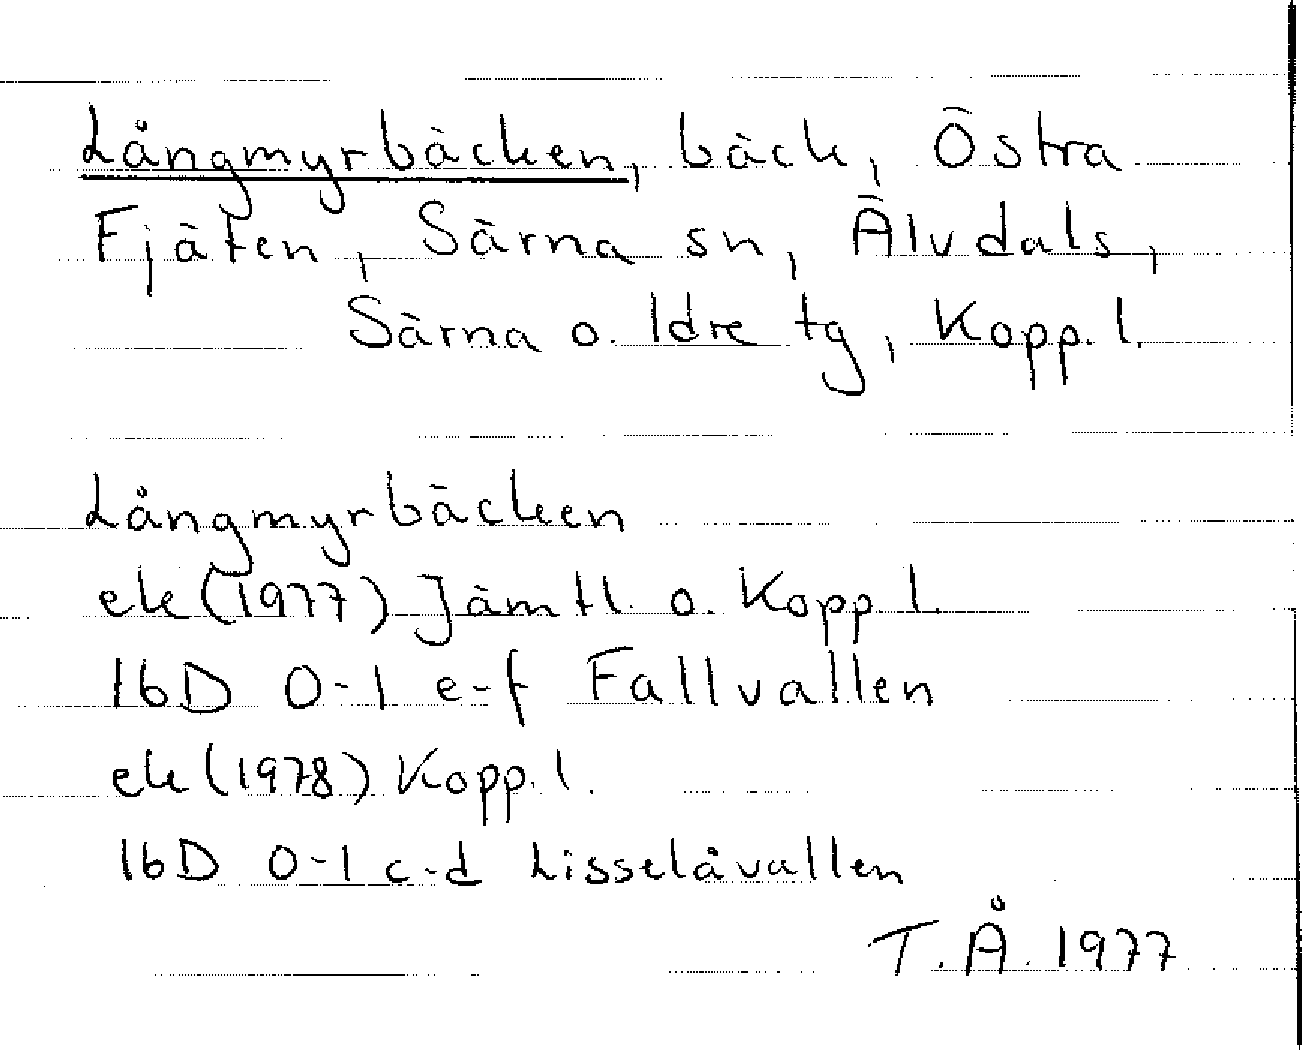 Långmyrbäcken, bäck, Östra
Fjäten, Särna sn, Älvdals,
Särna o. Idre tg, Kopp. l.
Långmyrbäcken
ek (1977) Jämtl. o. Kopp l.
16D 0-1 e-f Fallvallen
ek (1978) Kopp. l.
16D 0-1 c-d Lisselåvallen
T. Å. 1977